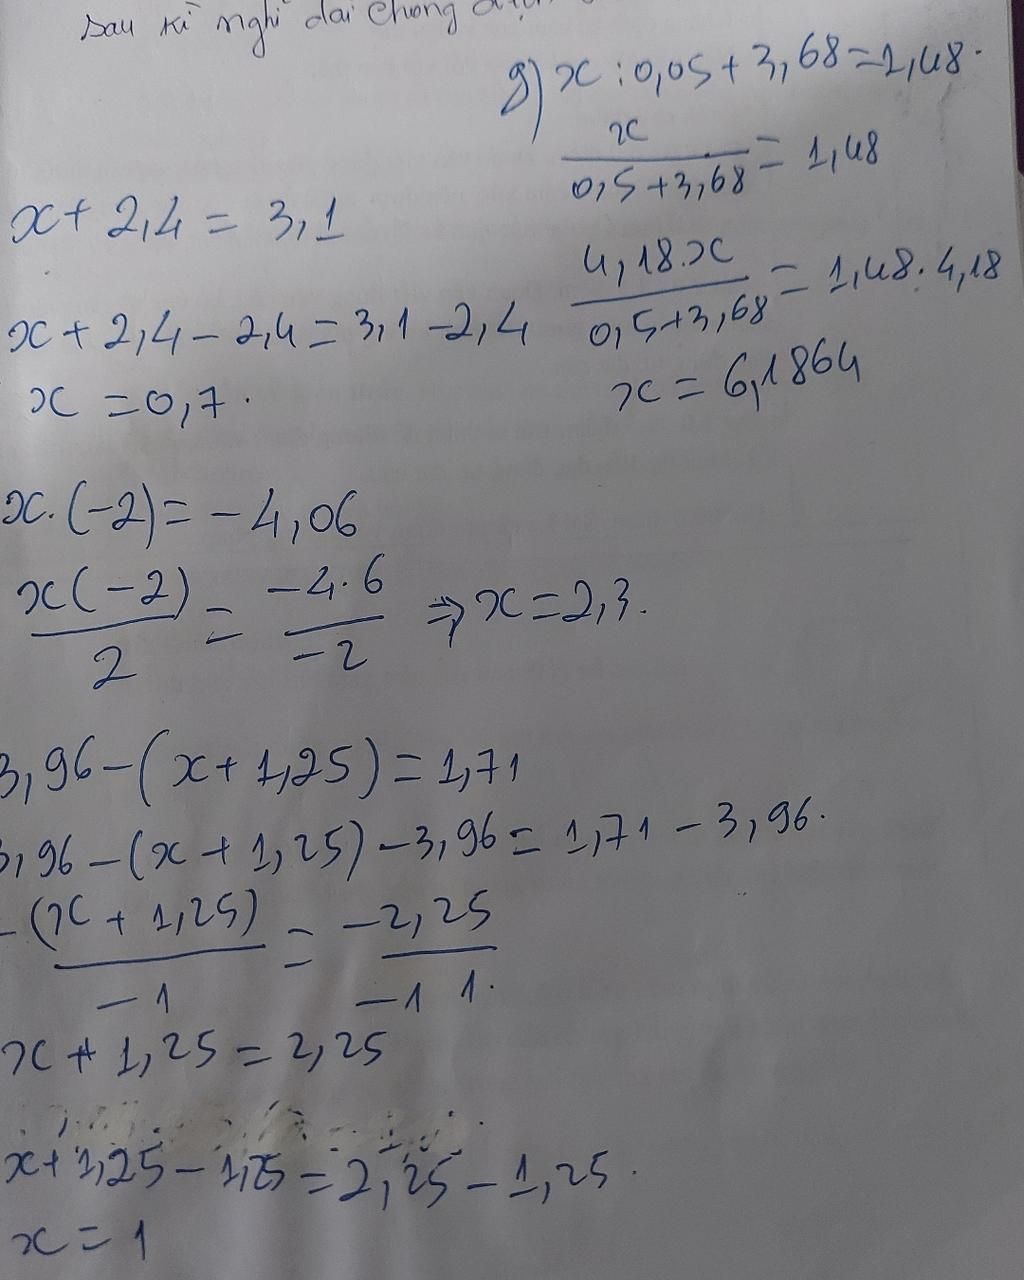 sau kì nghỉ dài chúng
x + 2,4 = 3,1
x + 2,4 - 2,4 = 3,1 - 2,4
x = 0,7.
x.(-2) = -4,06
x(-2)/2 = -4.6/-2 => x = 2,3.
3,96 - (x + 1,25) = 1,71
3,96 - (x + 1,25) - 3,96 = 1,71 - 3,96.
-(x + 1,25)/-1 = -2,25/-1 1.
x + 1,25 = 2,25
x + 1,25 - 1,25 = 2,25 - 1,25.
x = 1
g) x : 0,05 + 3,68 = 1,48.
x/0,5 + 3,68 = 1,48
4,18.x/0,5 + 3,68 = 1,48. 4,18
x = 6,1864